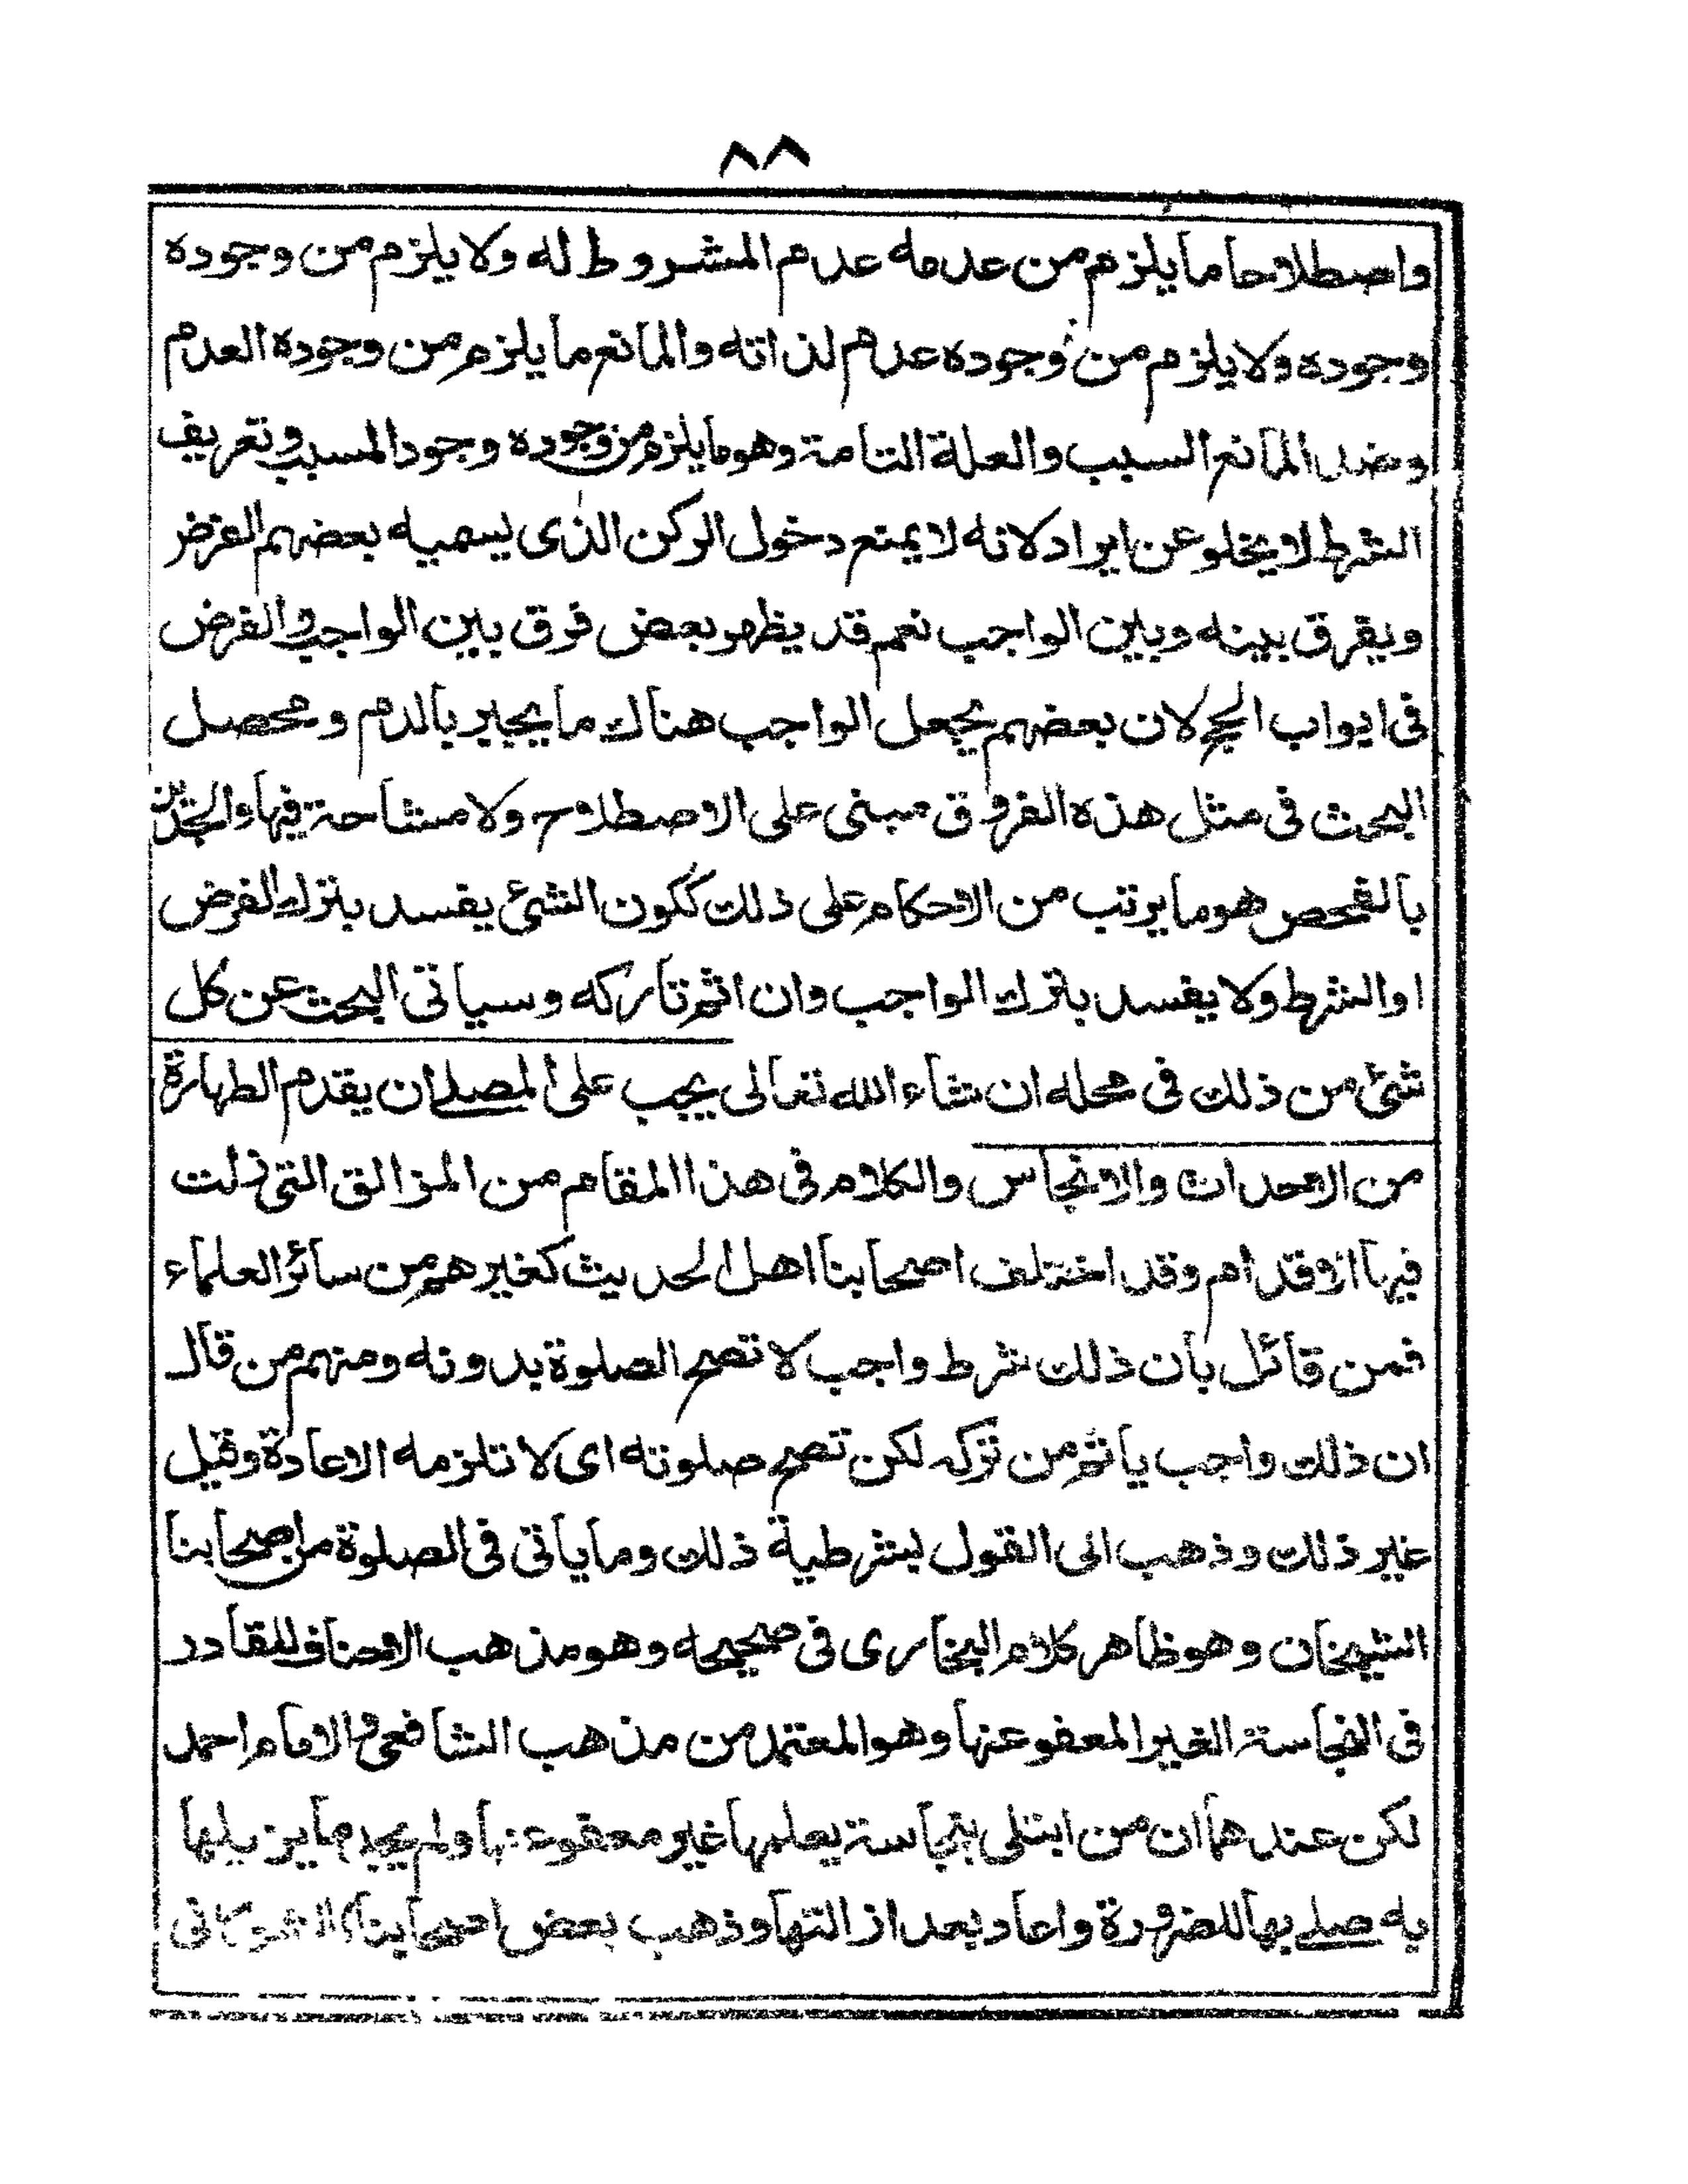 ٨٨
واصطلاحا ما يلزم من عدمه عدم المشروط له ولا يلزم من وجوده
وجوده ولا يلزم من وجوده عدم لذاته والمانع ما يلزم من وجوده العدم
وضد المانع السبب والعلة التامة وهو ما يلزم من وجوده وجود المسبب وتعريف
الشرط لا يخلو عن ايراد لانه لا يمتع دخول الركن الذى يسميه بعضهم الفرض
ويفرق بينه وبين الواجب نعم قد يظهر بعض فرق بين الواجب والفرض
فى ابواب الحج لان بعضهم يجعل الواجب هناك ما يجبر بالدم ومحصل
البحث فى مثل هذه الفروق مبنى على الاصطلاح ولا مشاحة فيها والجدير
بالفحص هو ما يرتب من الاحكام على ذلك ككون الشئ يفسد بترك الفرض
او الشرط ولا يفسد بترك الواجب وان اثم تاركه وسياتى البحث عن كل
شئ من ذلك فى محله ان شاء الله تعالى يجب على المصلى ان يقدم الطهارة
من الاحداث والانجاس والكلام فى هذا المقام من المزالق التى زلت
فيها الاقدام وقد اختلف اصحابنا اهل الحديث كغيرهم من سائر العلماء
فمن قائل بان ذلك شرط واجب لا تصح الصلوة بدونه ومنهم من قال
ان ذلك واجب ياثم من تركه لكن تصح صلوته اى لا تلزمه الاعادة وقيل
غير ذلك وذهب الى القول بشرطية ذلك وما ياتى فى الصلوة من اصحابنا
الشيخان وهو ظاهر كلام البخارى فى صحيحه وهو مذهب الاحناف للقادر
فى النجاسة الغير المعفو عنها وهو المعتمد من مذهب الشافعى والامام احمد
لكن عندهما ان من ابتلى بنجاسة يعلمها غير معفو عنها ولم يجد ما يزيلها
به صلى بها للضرورة واعاد بعد ازالتها وذهب بعض اصحابنا كالشوكانى